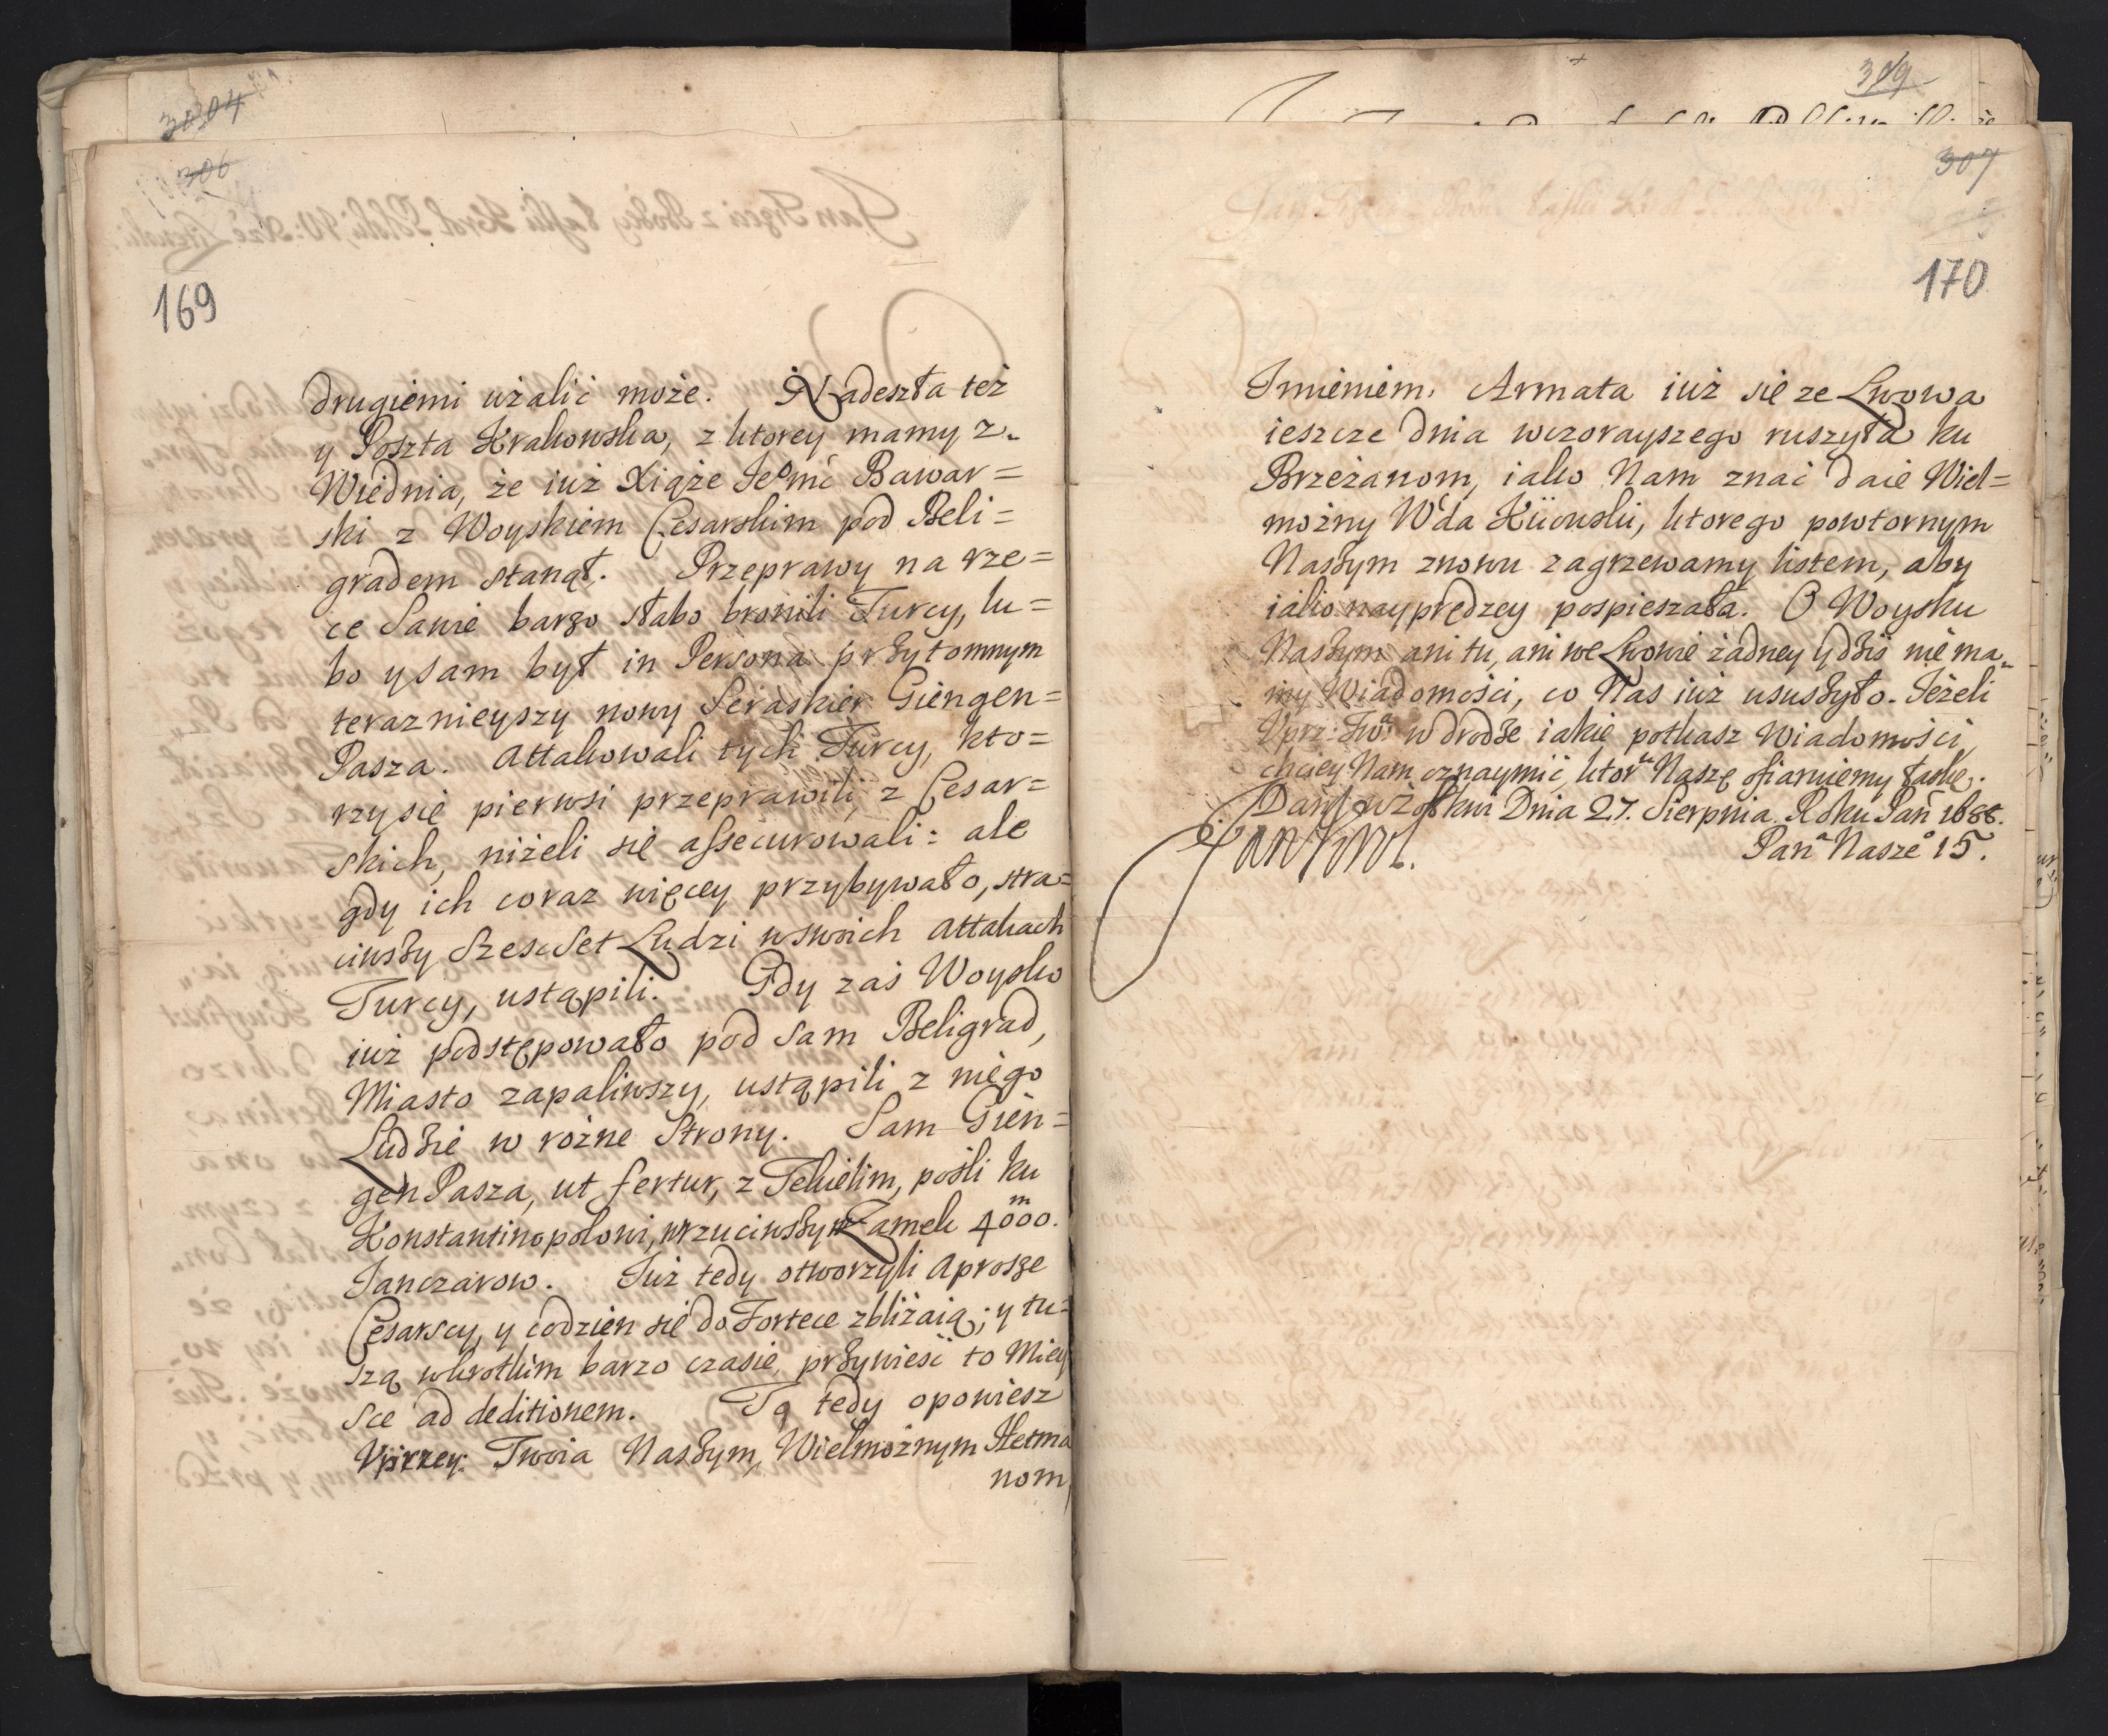 3304
306
169
drugiemi użalić może. Nadeszła też
y Poszta Krakowska, z ktorey mamy z
Wiednia, że iuż Xiąże Jeomć Bawar=
ski z Woyskiem Cesarskim pod Beli=
gradem stanął. Przeprawy na rze=
ce Sawie barzo słabo bronili Turcy, lu=
bo y sam był in Persona przytomnym
teraznieyszy nowy Seraskier Giengen=
Pasza. Attakowali tych Turcy, kto=
rzy się pierwsi przeprawili, z Cesar=
skich, niżeli się assecurowali: ale
gdy ich coraz więcey przybywało, stra=
ciwszy Szescset Ludzi w swoich attakach
Turcy, ustąpili. Gdy zaś Woysko
iuż podstępowało pod sam Beligrad,
Miasto zapaliwszy, ustąpili z niego
Ludzie w rożne Strony. Sam Gien=
gen Pasza, ut fertur, z Tekielim, pośli ku
Konstantinopolowi, wrzuciwszy w Zamek 4000.
m
Janczarow. Już tedy otworzyli aprosze
Cesarscy, y codzien się do Fortece zbliżaią; y tu=
szą w krotkim barzo czasie, przywieść to Miey
sce ad deditionem. Tą tedy opowiesz
Vprzey: Twoia Naszym, Wielmożnym Hetma
nom
309
307
170
Imieniem. Armata iuż się ze Lwowa
ieszcze dnia wczorayszego ruszyła ku
Brzeżanom, iako Nam znać daie Wiel=
możny Wda Kiiowski, ktorego powtornym
Naszym znowu zagrzewamy listem, aby
iako nayprędzey pospieszała. O Woysku
Naszym ani tu, ani we Lwowie żadney y dziś nie ma=
my Wiadomości, co Nas iuż ususzyło. Jeżeli
Vprz: Twa w drodze iakie potkasz Wiadomości,
chciey Nam oznaymić, ktora Naszę ofiaruiemy łaskę.
Dan w Żołkwi Dnia 27. Sierpnia Roku Pan 1688.
Pana Naszeo 15.
Jan Krol.